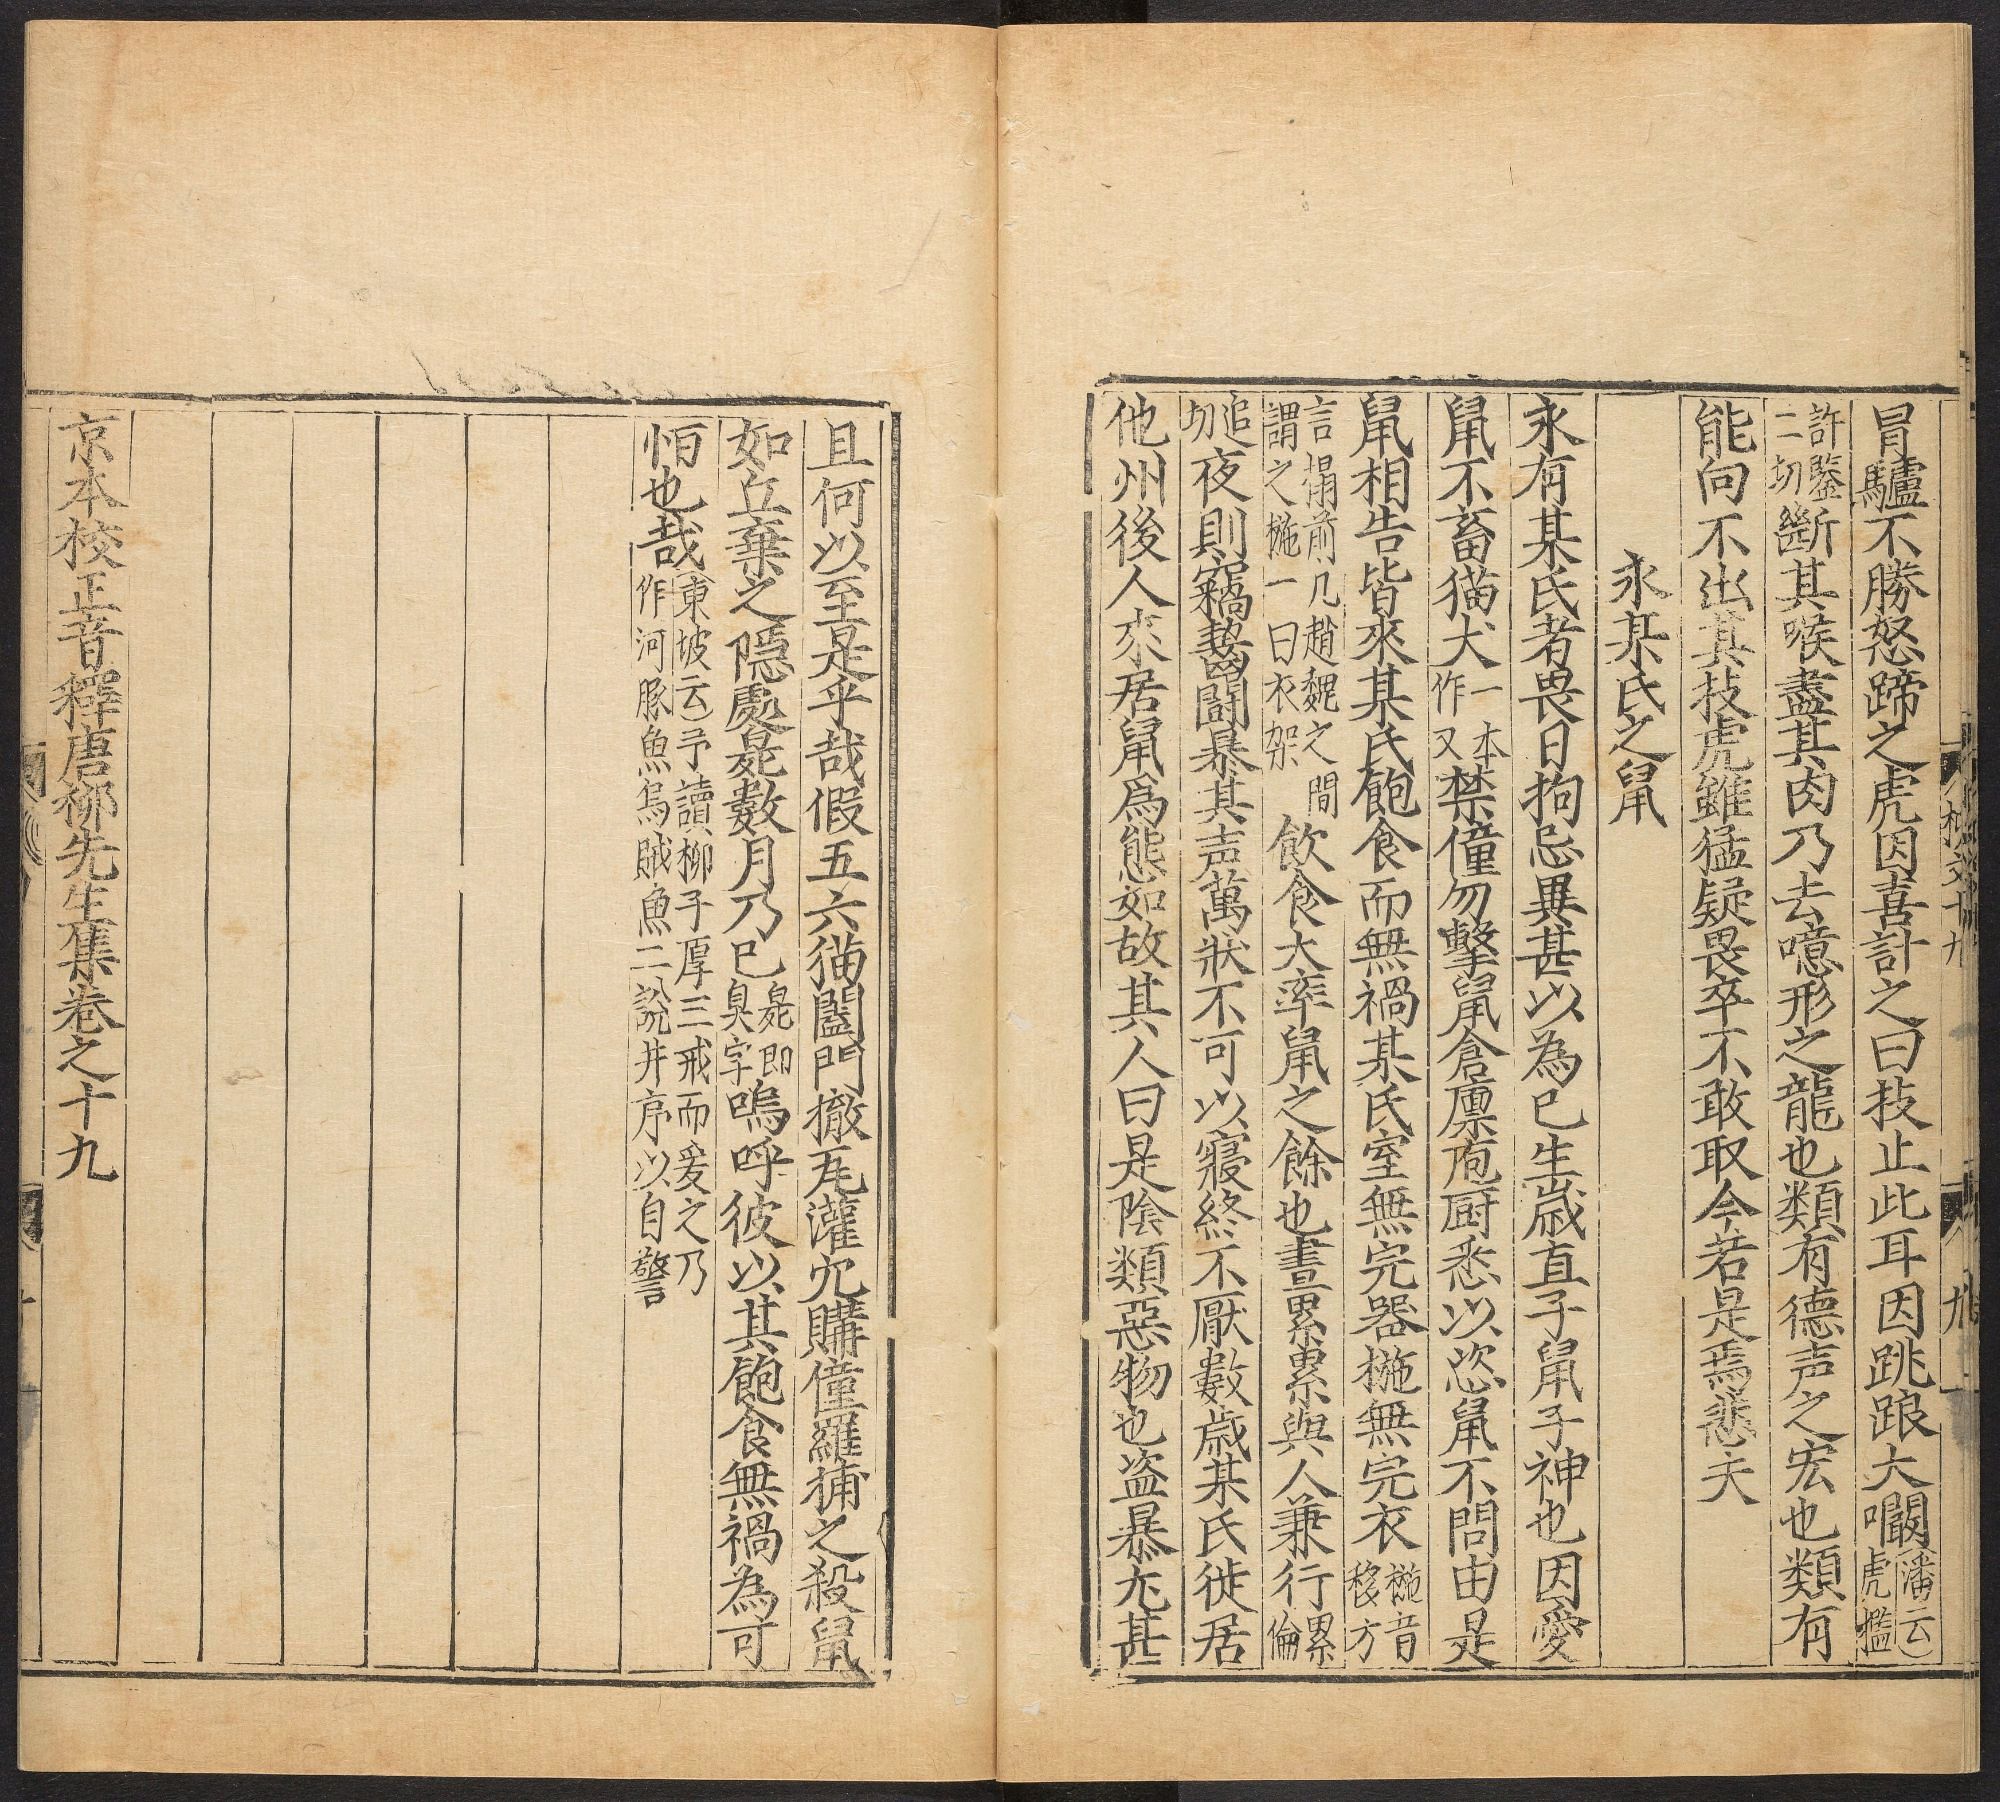 冐驢不勝怒蹄之虎因喜計之曰技止此耳因跳踉大㘚潘云虎檻
許鑒二切斷其喉盡其肉乃去噫形之龍也類有德声之宏也類有
能向不出其技虎雖猛疑畏卒不敢取今若是焉悲夫
永某氏之鼠
永有某氏者畏日拘忌異甚以為已生歲直子鼠子神也因愛
鼠不畜猫犬一本作又禁僮勿擊鼠倉廩庖厨悉以恣鼠不問由是
鼠相告皆來某氏飽食而無禍某氏室無完器椸無完衣椸音移方
言榻前几趙魏之間謂之椸一曰衣架飲食大率鼠之餘也晝累累與人兼行累倫
追切夜則竊齧鬪暴其声萬狀不可以寢終不厭數歲某氏徙居
他州後人來居鼠爲態如故其人曰是陰類惡物也盗暴尤甚
且何以至是乎哉假五六猫闔門撤瓦灌穴購僮羅捕之殺鼠
如丘棄之隠處㚖數月乃已㚖即臭字嗚呼彼以其飽食無禍為可
怕也哉東坡云予讀柳子厚三戒而爰之乃作河豚魚烏賊魚二說并序以自警
京本校正音釋唐柳先生集卷之十九
柳文十九
九